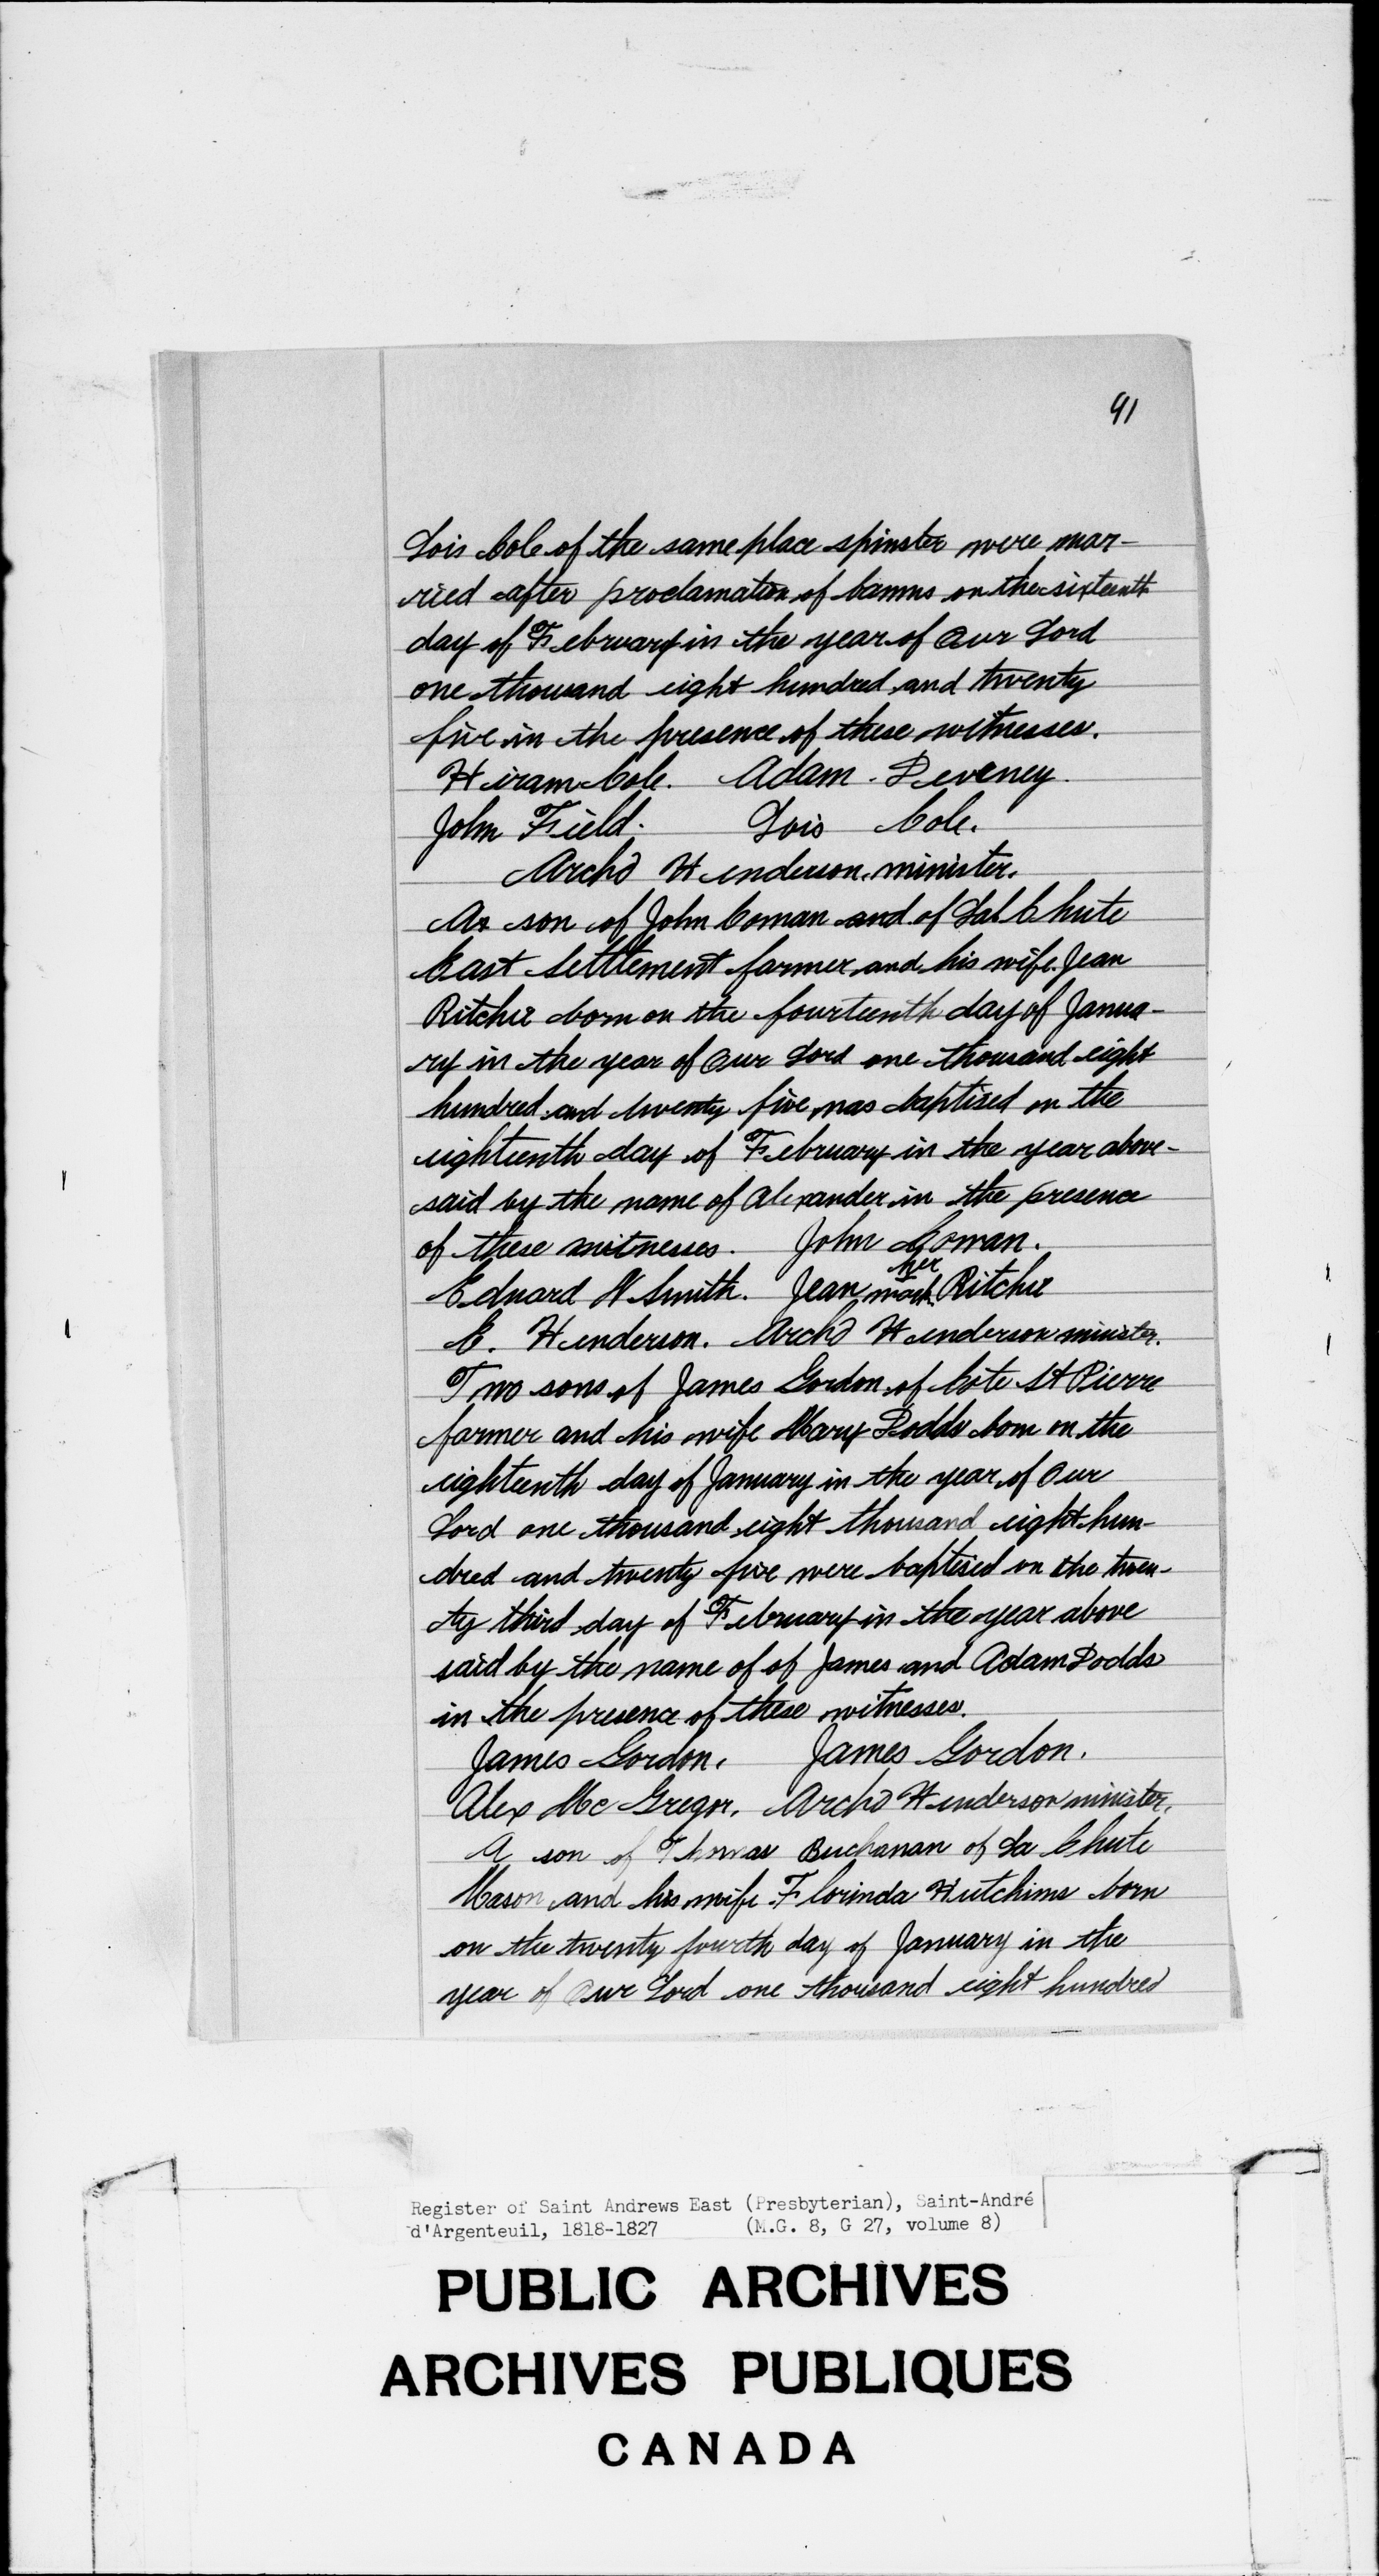 91
Lois Cole of the same place spinster were mar-
ried after proclamation of banns on the sixteenth
day of February in the year of Our Lord
one thousand eight hundred and twenty
five in the presence of these witnesses.
Hiram Cole. Adam Deveney.
John Field. Lois Cole.
Archd Henderson, minister.
A son of John Coman and of La Chute
East Settlement farmer and his wife Jean
Ritchie born on the fourteenth day of Janua-
ry in the year of Our Lord one thousand eight
hundred and twenty five was baptised on the
eighteenth day of February in the year above-
said by the name of Alexander in the presence
of these witnesses. John Cowan.
her
Edward W Smith. Jean mark Ritchie
E. Henderson. Archd Henderson minister.
Two sons of James Gordon of Cote St Pierre
farmer and his wife Mary Dodds born on the
eighteenth day of January in the year of Our
Lord one thousand eight thousand eight hun-
dred and twenty five were baptised on the twen-
ty third day of February in the year above
said by the name of of James and Adam Dodds
in the presence of these witnesses.
James Gordon. James Gordon.
Alex Mc Gregor. Archd Henderson minister.
A son of Thomas Buchanan of La Chute
Mason and his wife Florinda Hutchins born
on the twenty fourth day of January in the
year of Our Lord one thousand eight hundred
Register of Saint Andrews East (Presbyterian), Saint-André
d'Argenteuil, 1818-1827 (M.G. 8, G 27, volume 8)
PUBLIC ARCHIVES
ARCHIVES PUBLIQUES
CANADA